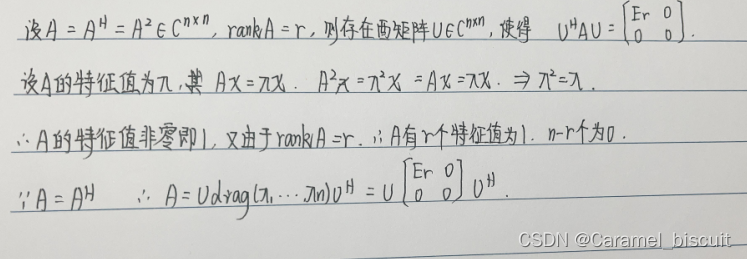 设A = Aᴴ = A² ∈ Cⁿˣⁿ, rankA = r, 则存在酉矩阵U∈Cⁿˣⁿ, 使得 UᴴAU = [Er 0 0 0].
设A的特征值为λ, 其 Ax = λx. A²x = λ²x = Ax = λx. ⇒ λ² = λ.
∴A的特征值非零即1, 又由于rankA = r. ∴A有r个特征值为1. n-r个为0.
∵A = Aᴴ ∴ A = Udiag(λ, ⋯ λn)Uᴴ = U [Er 0 0 0] Uᴴ.
CSDN @Caramel_biscuit